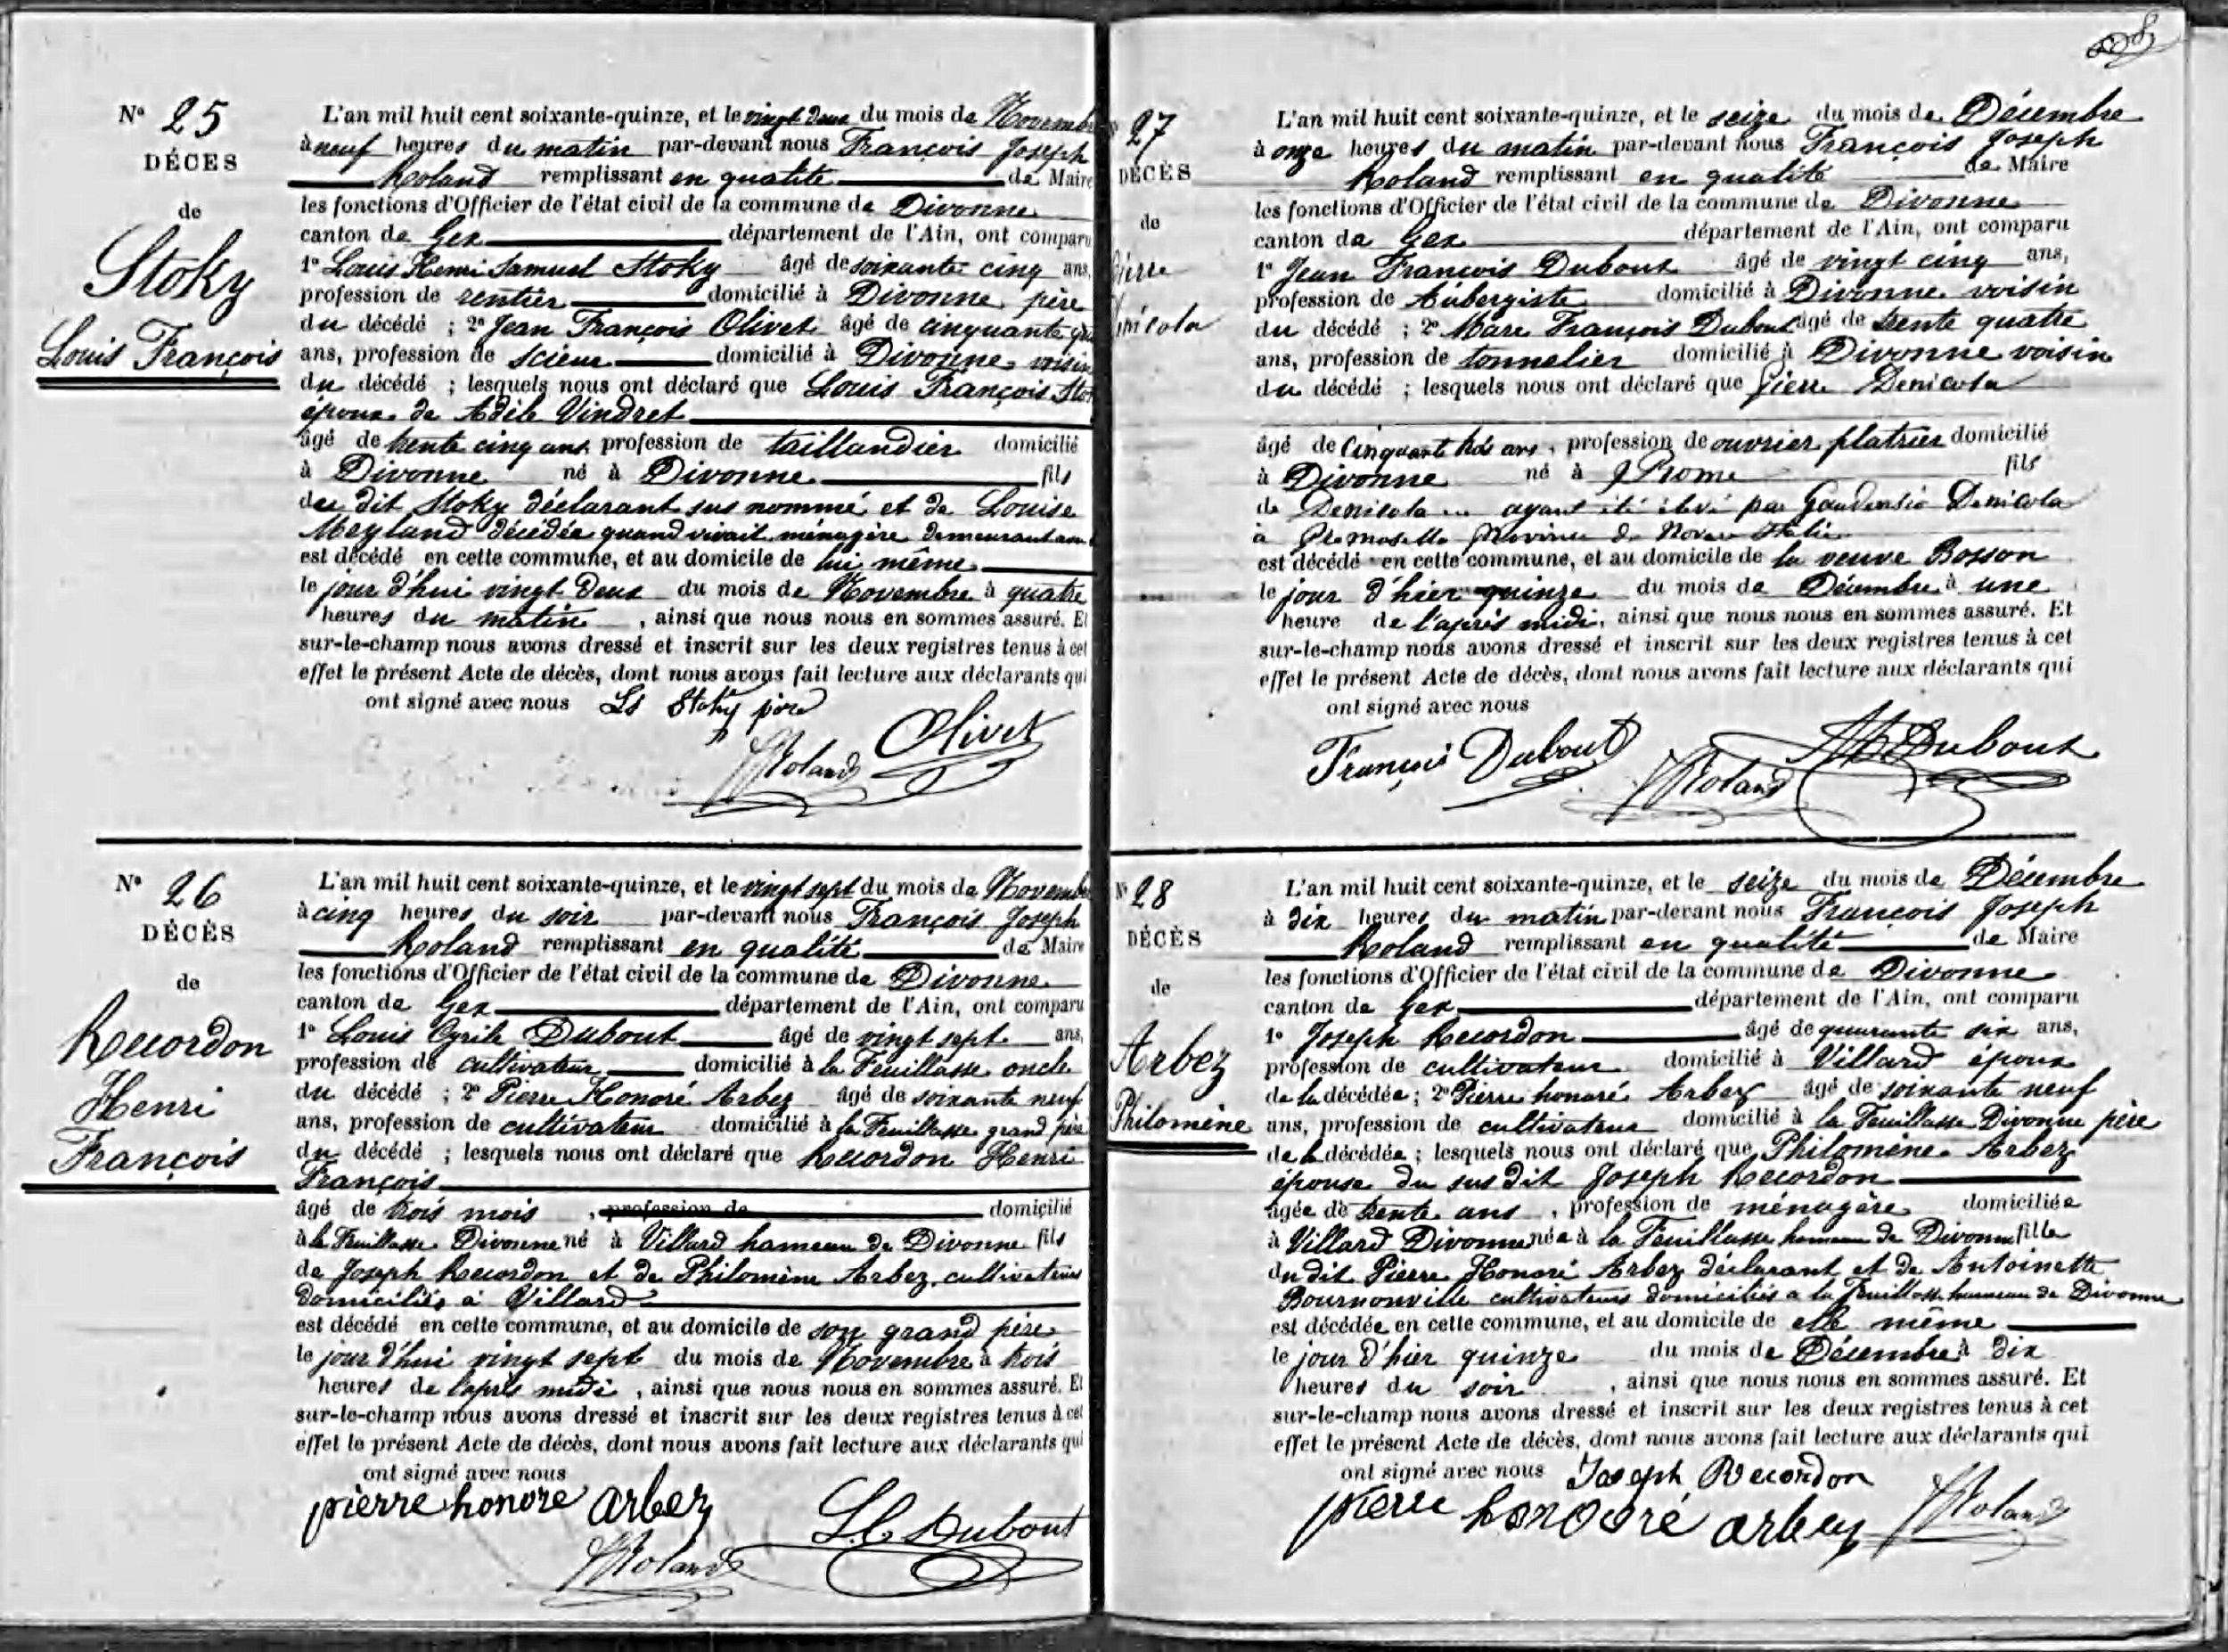 8
N° 25
DÉCÈS
de
Stoky
Louis François
L'an mil huit cent soixante-quinze, et le vingt deux du mois de Novembre
à neuf heures du matin par-devant nous François Joseph
Roland remplissant en qualité de Maire
les fonctions d'Officier de l'état civil de la commune de Divonne
canton de Gex département de l'Ain, ont comparu
1° Louis Henri Samuel Stoky âgé de soixante cinq ans,
profession de rentier domicilié à Divonne père
du décédé ; 2° Jean François Olivet âgé de cinquante
ans, profession de scieur domicilié à Divonne, voisin
du décédé ; lesquels nous ont déclaré que Louis François Sto
époux de Adèle Vindret
âgé de trente cinq ans profession de taillandier domicilié
à Divonne né à Divonne fils
du dit Stoky déclarant sus nommé et de Louise
Meyland décédée quand vivait ménagère demeurant
est décédé en cette commune, et au domicile de lui même
le jour d'hui vingt deux du mois de Novembre à quatre
heures du matin , ainsi que nous nous en sommes assuré. Et
sur-le-champ nous avons dressé et inscrit sur les deux registres tenus à cet
effet le présent Acte de décès, dont nous avons fait lecture aux déclarants qui
ont signé avec nous Ls Stoky père
Olivet
Roland
N° 26
DÉCÈS
de
Recordon
Henri
François
L'an mil huit cent soixante-quinze, et le vingt sept du mois de Novembre
à cinq heures du soir par-devant nous François Joseph
Roland remplissant en qualité de Maire
les fonctions d'Officier de l'état civil de la commune de Divonne
canton de Gex département de l'Ain, ont comparu
1° Louis Cyrile Dubout âgé de vingt sept ans,
profession de cultivateur domicilié à la Feuillasse oncle
du décédé ; 2° Pierre Honoré Arbez âgé de soixante neuf
ans, profession de cultivateur domicilié à la Feuillasse grand père
du décédé ; lesquels nous ont déclaré que Recordon Henri
François
âgé de trois mois , profession de domicilié
à la Feuillasse Divonne né à Villard hameau de Divonne fils
de Joseph Recordon et de Philomène Arbez, cultivateurs
domiciliés à Villard
est décédé en cette commune, et au domicile de son grand père
le jour d'hui vingt sept du mois de Novembre à trois
heures de l'après midi , ainsi que nous nous en sommes assuré. Et
sur-le-champ nous avons dressé et inscrit sur les deux registres tenus à cet
effet le présent Acte de décès, dont nous avons fait lecture aux déclarants qui
ont signé avec nous
pierre honore arbez
L C Dubout
Roland
27
DÉCÈS
de
Pierre
Denicola
L'an mil huit cent soixante-quinze, et le seize du mois de Décembre
à onze heures du matin par-devant nous François Joseph
Roland remplissant en qualité de Maire
les fonctions d'Officier de l'état civil de la commune de Divonne
canton de Gex département de l'Ain, ont comparu
1° Jean François Dubout âgé de vingt cinq ans,
profession de Aubergiste domicilié à Divonne voisin
du décédé ; 2° Marc François Dubout âgé de trente quatre
ans, profession de tonnelier domicilié à Divonne voisin
du décédé ; lesquels nous ont déclaré que Pierre Denicola
âgé de Cinquante trois ans , profession de ouvrier platrier domicilié
à Divonne né à Rome fils
de Denicola ... ayant été élevé par Gaudensio Denicola
à Premosello Province de Novare Italie
est décédé en cette commune, et au domicile de la veuve Bosson
le jour d'hier quinze du mois de Décembre à une
heure de l'après midi, ainsi que nous nous en sommes assuré. Et
sur-le-champ nous avons dressé et inscrit sur les deux registres tenus à cet
effet le présent Acte de décès, dont nous avons fait lecture aux déclarants qui
ont signé avec nous
François Dubout
Dubout
Roland
N° 28
DÉCÈS
de
Arbez
Philomène
L'an mil huit cent soixante-quinze, et le seize du mois de Décembre
à dix heures du matin par-devant nous François Joseph
Roland remplissant en qualité de Maire
les fonctions d'Officier de l'état civil de la commune de Divonne
canton de Gex département de l'Ain, ont comparu
1° Joseph Recordon âgé de quarante six ans,
profession de cultivateur domicilié à Villard époux
de la décédée ; 2° Pierre honoré Arbez âgé de soixante neuf
ans, profession de cultivateur domicilié à la Feuillasse Divonne père
de la décédée ; lesquels nous ont déclaré que Philomène Arbez
épouse du sus dit Joseph Recordon
âgée de trente ans , profession de ménagère domiciliée
à Villard Divonne née à la Feuillasse hameau de Divonne fille
du dit Pierre Honoré Arbez déclarant et de Antoinette
Bournonville cultivateurs domiciliés a la Feuillasse hameau de Divonne
est décédée en cette commune, et au domicile de elle même
le jour d'hier quinze du mois de Décembre à dix
heures du soir , ainsi que nous nous en sommes assuré. Et
sur-le-champ nous avons dressé et inscrit sur les deux registres tenus à cet
effet le présent Acte de décès, dont nous avons fait lecture aux déclarants qui
ont signé avec nous Joseph Recordon
pierre honoré arbez
Roland